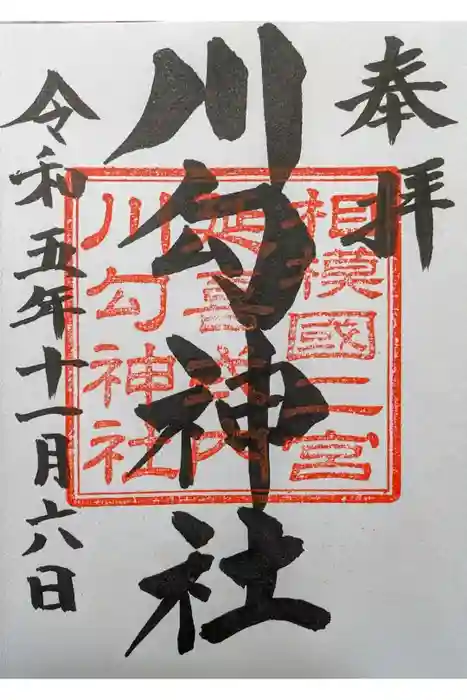 奉拝
川勾神社
令和五年十一月六日
相模國二宮
延喜式内
川勾神社